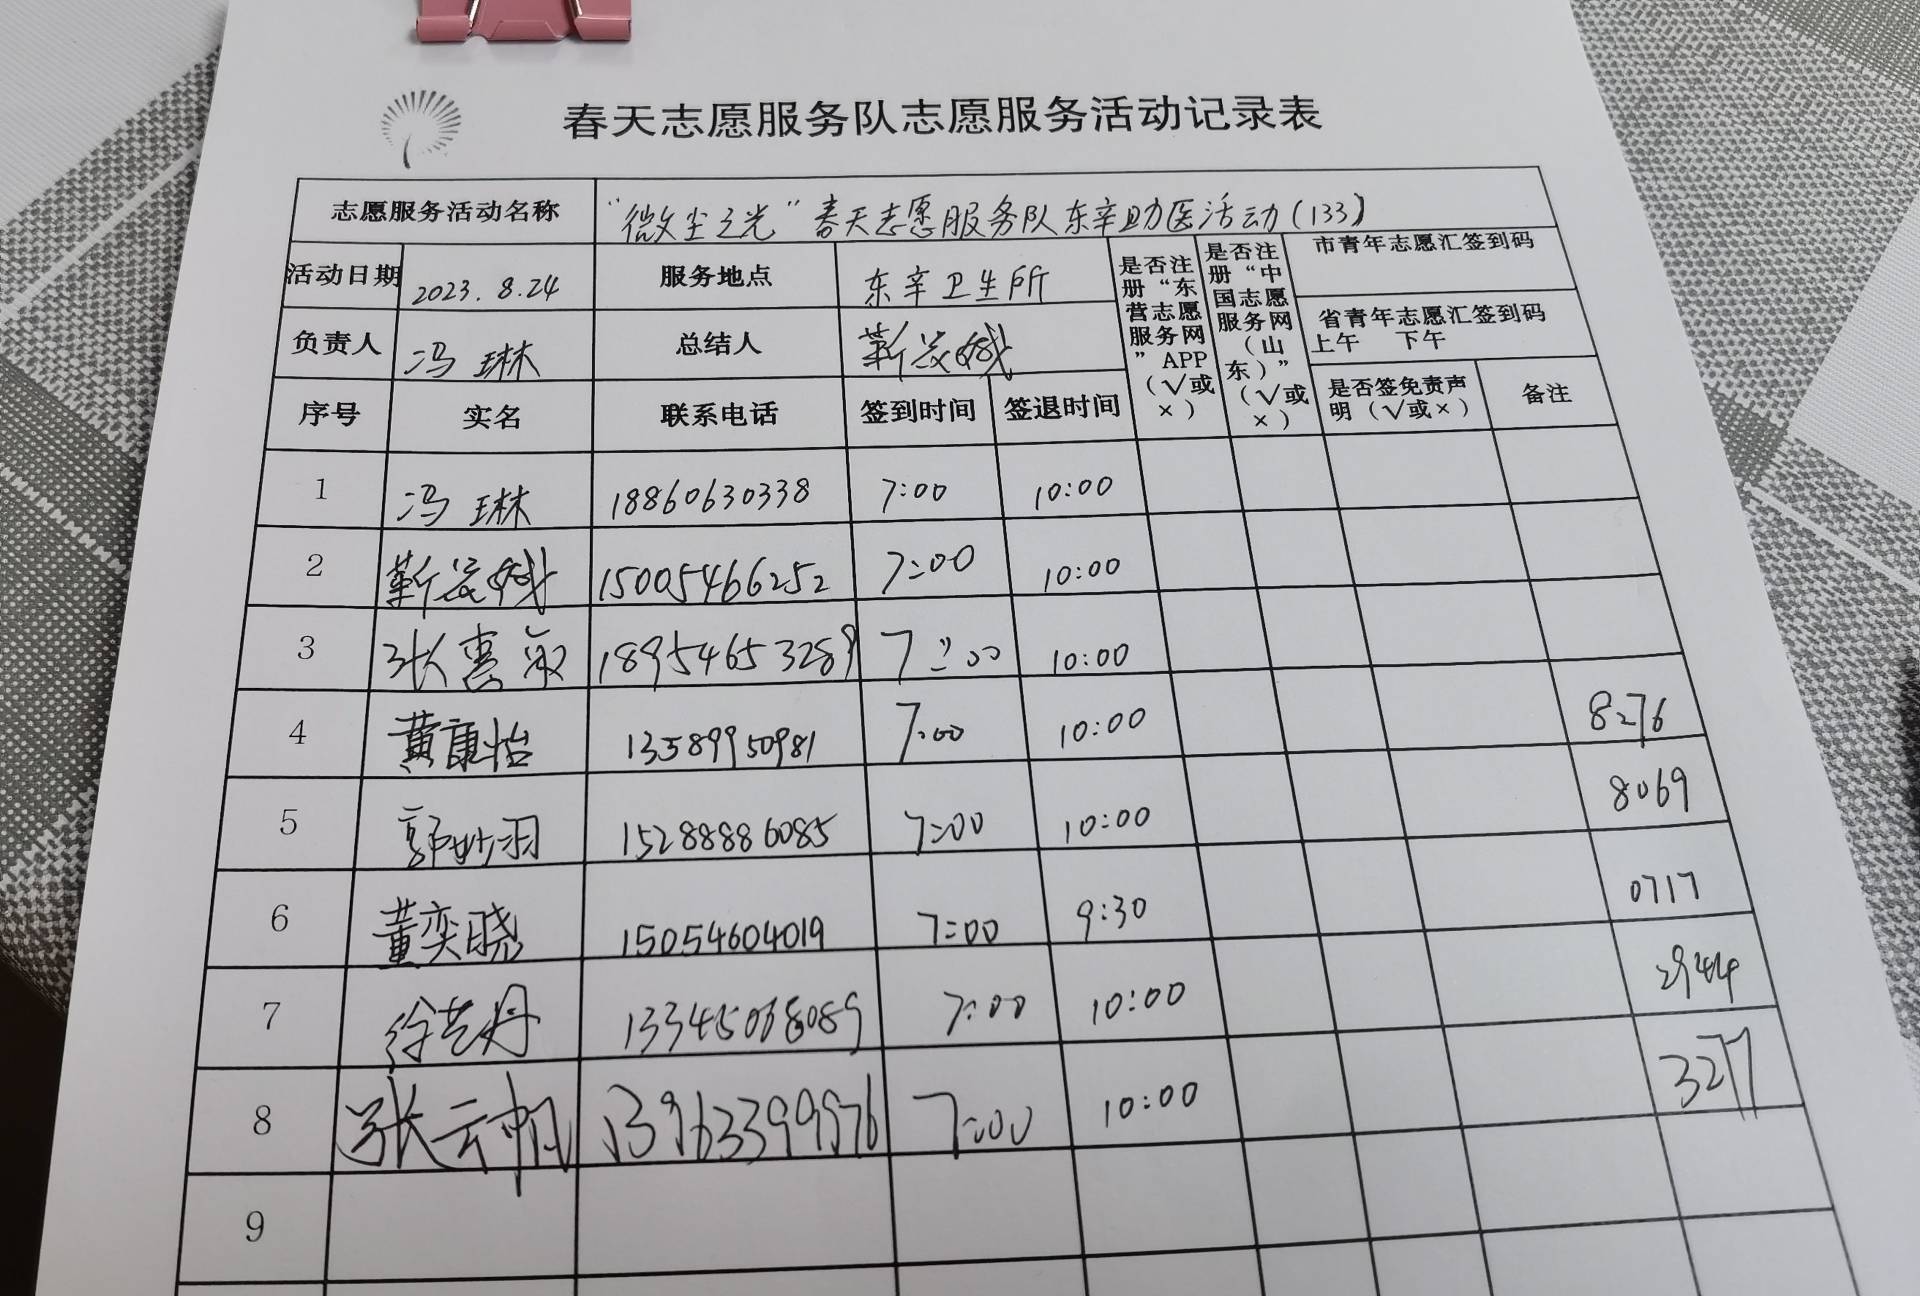 春天志愿服务队志愿服务活动记录表
志愿服务活动名称 “微尘之光”春天志愿服务队东辛助医活动(133)
活动日期 2023.8.24 服务地点 东辛卫生所
负责人 冯琳 总结人
是否注册“东营志愿服务网”APP（√或×）
是否注册“中国志愿服务网（山东）”（√或×）
市青年志愿汇签到码
省青年志愿汇签到码
上午 下午
序号 实名 联系电话 签到时间 签退时间 是否签免责声明（√或×） 备注
1 冯琳 18860630338 7:00 10:00
2 15005466252 7:00 10:00
3 张惠敏 18954653289 7:00 10:00
4 黄康怡 13589950981 7:00 10:00 8276
5 郭妙羽 15288886085 7:00 10:00 8069
6 董奕晓 15054604019 7:00 9:30 0717
7 徐艺丹 7:00 10:00 2944
8 张云帆 13963399976 7:00 10:00 3277
9